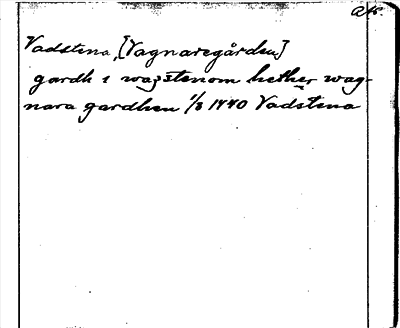 Ats.
Vadstena, [Vagnaregården]
gardh i wazstenom hether wag-
nara gardhen 1/8 1440 Vadstena